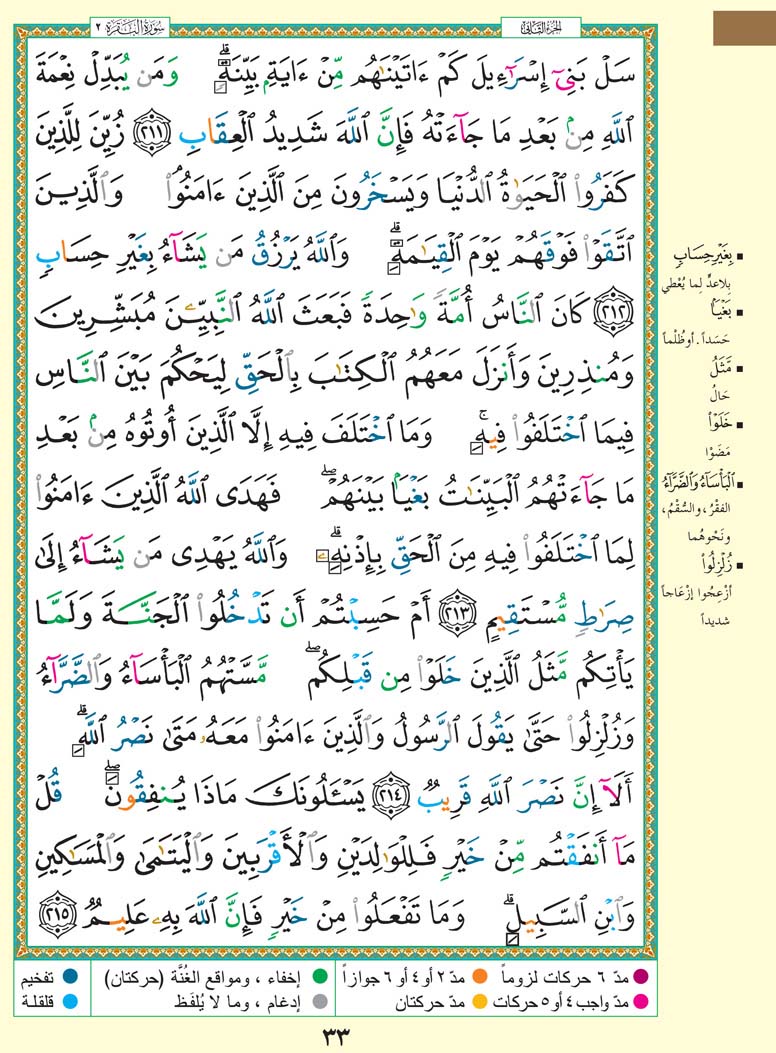 الجزء الثاني
سورة البقرة ٢
سَلْ بَنِىٓ إِسْرَٰٓءِيلَ كَمْ ءَاتَيْنَٰهُم مِّنْ ءَايَةٍۭ بَيِّنَةٍۗ وَمَن يُبَدِّلْ نِعْمَةَ
ٱللَّهِ مِنۢ بَعْدِ مَا جَآءَتْهُ فَإِنَّ ٱللَّهَ شَدِيدُ ٱلْعِقَابِ ٢١١ زُيِّنَ لِلَّذِينَ
كَفَرُوا۟ ٱلْحَيَوٰةُ ٱلدُّنْيَا وَيَسْخَرُونَ مِنَ ٱلَّذِينَ ءَامَنُوا۟ۘ وَٱلَّذِينَ
ٱتَّقَوْا۟ فَوْقَهُمْ يَوْمَ ٱلْقِيَٰمَةِۗ وَٱللَّهُ يَرْزُقُ مَن يَشَآءُ بِغَيْرِ حِسَابٍ
٢١٢ كَانَ ٱلنَّاسُ أُمَّةً وَٰحِدَةً فَبَعَثَ ٱللَّهُ ٱلنَّبِيِّۦنَ مُبَشِّرِينَ
وَمُنذِرِينَ وَأَنزَلَ مَعَهُمُ ٱلْكِتَٰبَ بِٱلْحَقِّ لِيَحْكُمَ بَيْنَ ٱلنَّاسِ
فِيمَا ٱخْتَلَفُوا۟ فِيهِۚ وَمَا ٱخْتَلَفَ فِيهِ إِلَّا ٱلَّذِينَ أُوتُوهُ مِنۢ بَعْدِ
مَا جَآءَتْهُمُ ٱلْبَيِّنَٰتُ بَغْيًۢا بَيْنَهُمْۖ فَهَدَى ٱللَّهُ ٱلَّذِينَ ءَامَنُوا۟
لِمَا ٱخْتَلَفُوا۟ فِيهِ مِنَ ٱلْحَقِّ بِإِذْنِهِۦۗ وَٱللَّهُ يَهْدِى مَن يَشَآءُ إِلَىٰ
صِرَٰطٍ مُّسْتَقِيمٍ ٢١٣ أَمْ حَسِبْتُمْ أَن تَدْخُلُوا۟ ٱلْجَنَّةَ وَلَمَّا
يَأْتِكُم مَّثَلُ ٱلَّذِينَ خَلَوْا۟ مِن قَبْلِكُمۖ مَّسَّتْهُمُ ٱلْبَأْسَآءُ وَٱلضَّرَّآءُ
وَزُلْزِلُوا۟ حَتَّىٰ يَقُولَ ٱلرَّسُولُ وَٱلَّذِينَ ءَامَنُوا۟ مَعَهُۥ مَتَىٰ نَصْرُ ٱللَّهِۗ
أَلَآ إِنَّ نَصْرَ ٱللَّهِ قَرِيبٌ ٢١٤ يَسْـَٔلُونَكَ مَاذَا يُنفِقُونَۖ قُلْ
مَآ أَنفَقْتُم مِّنْ خَيْرٍ فَلِلْوَٰلِدَيْنِ وَٱلْأَقْرَبِينَ وَٱلْيَتَٰمَىٰ وَٱلْمَسَٰكِينِ
وَٱبْنِ ٱلسَّبِيلِۗ وَمَا تَفْعَلُوا۟ مِنْ خَيْرٍ فَإِنَّ ٱللَّهَ بِهِۦ عَلِيمٌ ٢١٥
▪ بِغَيْرِ حِسَابٍ
بِلا عدٍّ لِما يُعْطي
▪ بَغْيًا
حَسَداً. أو ظُلْماً
▪ مَّثَلُ
حَالُ
▪ خَلَوْا۟
مَضَوْا
▪ ٱلْبَأْسَآءُ وَٱلضَّرَّآءُ
الفقْرُ، والسُّقْمُ،
ونَحْوهُما
▪ زُلْزِلُوا۟
أزْعِجُوا إزْعَاجاً
شديداً
● مدّ ٦ حركات لزوماً ● مدّ ٢ أو ٤ أو ٦ جوازاً ● إخفاء ، ومواقع الغُنَّة (حركتان) ● تفخيم
● مدّ واجب ٤ أو ٥ حركات ● مدّ حركتان ● إدغام ، وما لا يُلفَظ ● قلقلة
٣٣